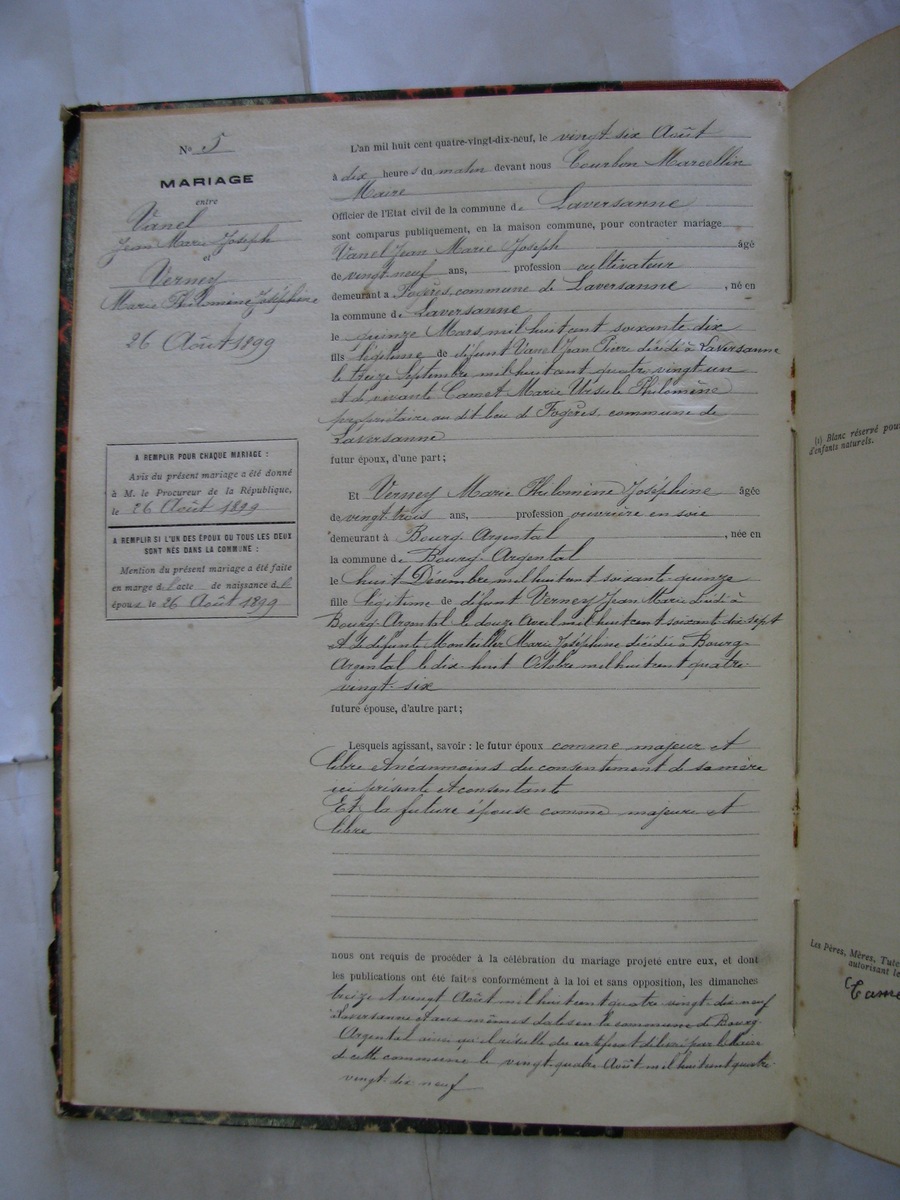 No 5
MARIAGE
entre
Vanel
Jean Marie Joseph
et
Verney
Marie Philomène Joséphine
26 Août 1899
A REMPLIR POUR CHAQUE MARIAGE :
Avis du présent mariage a été donné
à M. le Procureur de la République,
le 26 Août 1899
A REMPLIR SI L'UN DES ÉPOUX OU TOUS LES DEUX
SONT NÉS DANS LA COMMUNE :
Mention du présent mariage a été faite
en marge de l'acte de naissance de l
époux le 26 Août 1899
L'an mil huit cent quatre-vingt-dix-neuf, le vingt six Août
à dix heures du matin devant nous Courbon Marcellin
Maire
Officier de l'Etat civil de la commune de Laversanne
sont comparus publiquement, en la maison commune, pour contracter mariage
Vanel Jean Marie Joseph âgé
de vingt-neuf ans, profession cultivateur
demeurant à Fogères, commune de Laversanne, né en
la commune de Laversanne
le quinze Mars mil huit cent soixante dix
fils légitime de défunt Vanel Jean Pierre décédé à Laversanne
le treize Septembre mil huit cent quatre vingt un
et de vivante Camet Marie Ursule Philomène
propriétaire au dit lieu de Fogères, commune de
Laversanne
futur époux, d'une part ;
Et Verney Marie Philomène Joséphine âgée
de vingt trois ans, profession ouvrière en soie
demeurant à Bourg-Argental, née en
la commune de Bourg-Argental
le huit Décembre mil huit cent soixante-quinze
fille légitime de défunt Verney Jean Marie décédé à
Bourg-Argental le douze Avril mil huit cent soixante-dix-sept
et de défunte Monteiller Marie Joséphine décédée à Bourg-
Argental le dix huit Octobre mil huit cent quatre-
vingt-six
future épouse, d'autre part ;
Lesquels agissant, savoir : le futur époux comme majeur et
libre et néanmoins du consentement de sa mère
ici présente et consentante
Et la future épouse comme majeure et
libre
nous ont requis de procéder à la célébration du mariage projeté entre eux, et dont
les publications ont été faites conformément à la loi et sans opposition, les dimanches
treize et vingt Août mil huit cent quatre vingt-dix neuf
à Laversanne et aux mêmes dates en la commune de Bourg-
Argental ainsi qu'il résulte du certificat délivré par le Maire
de cette commune le vingt-quatre Août mil huit cent quatre-
vingt-dix neuf
(1) Blanc réservé pour
d'enfants naturels.
Les Pères, Mères,
autorisant le